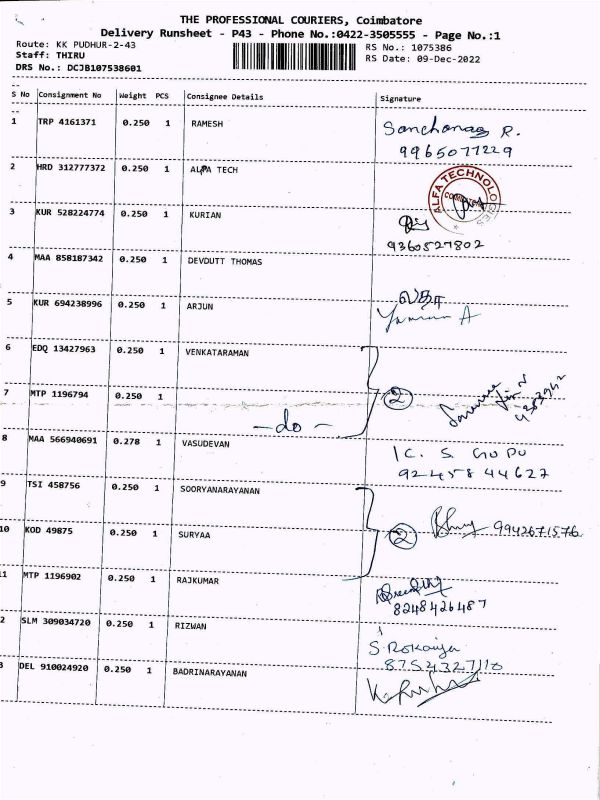 THE PROFESSIONAL COURIERS, Coimbatore
Delivery Runsheet - P43 - Phone No.:0422-3505555 - Page No.:1
Route: KK PUDHUR-2-43
RS No.: 1075386
Staff: THIRU
RS Date: 09-Dec-2022
DRS No.: DCJB107538601
S No Consignment No Weight PCS Consignee Details Signature
1 TRP 4161371 0.250 1 RAMESH R.
9965077229
2 HRD 312777372 0.250 1 ALFA TECH ALFA TECHNOLOGIES
3 KUR 528224774 0.250 1 KURIAN
9360527802
4 MAA 858187342 0.250 1 DEVDUTT THOMAS
5 KUR 694238996 0.250 1 ARJUN
A
6 EDQ 13427963 0.250 1 VENKATARAMAN
7 MTP 1196794 0.250 1 2
-do-
8 MAA 566940691 0.278 1 VASUDEVAN K. S GOPU
92458 44627
9 TSI 458756 0.250 1 SOORYANARAYANAN
9942671576
10 KOD 49875 0.250 1 SURYAA 2
11 MTP 1196902 0.250 1 RAJKUMAR
8248426487
2 SLM 309034720 0.250 1 RIZWAN S. Rokaiya
8754327110
3 DEL 910024920 0.250 1 BADRINARAYANAN